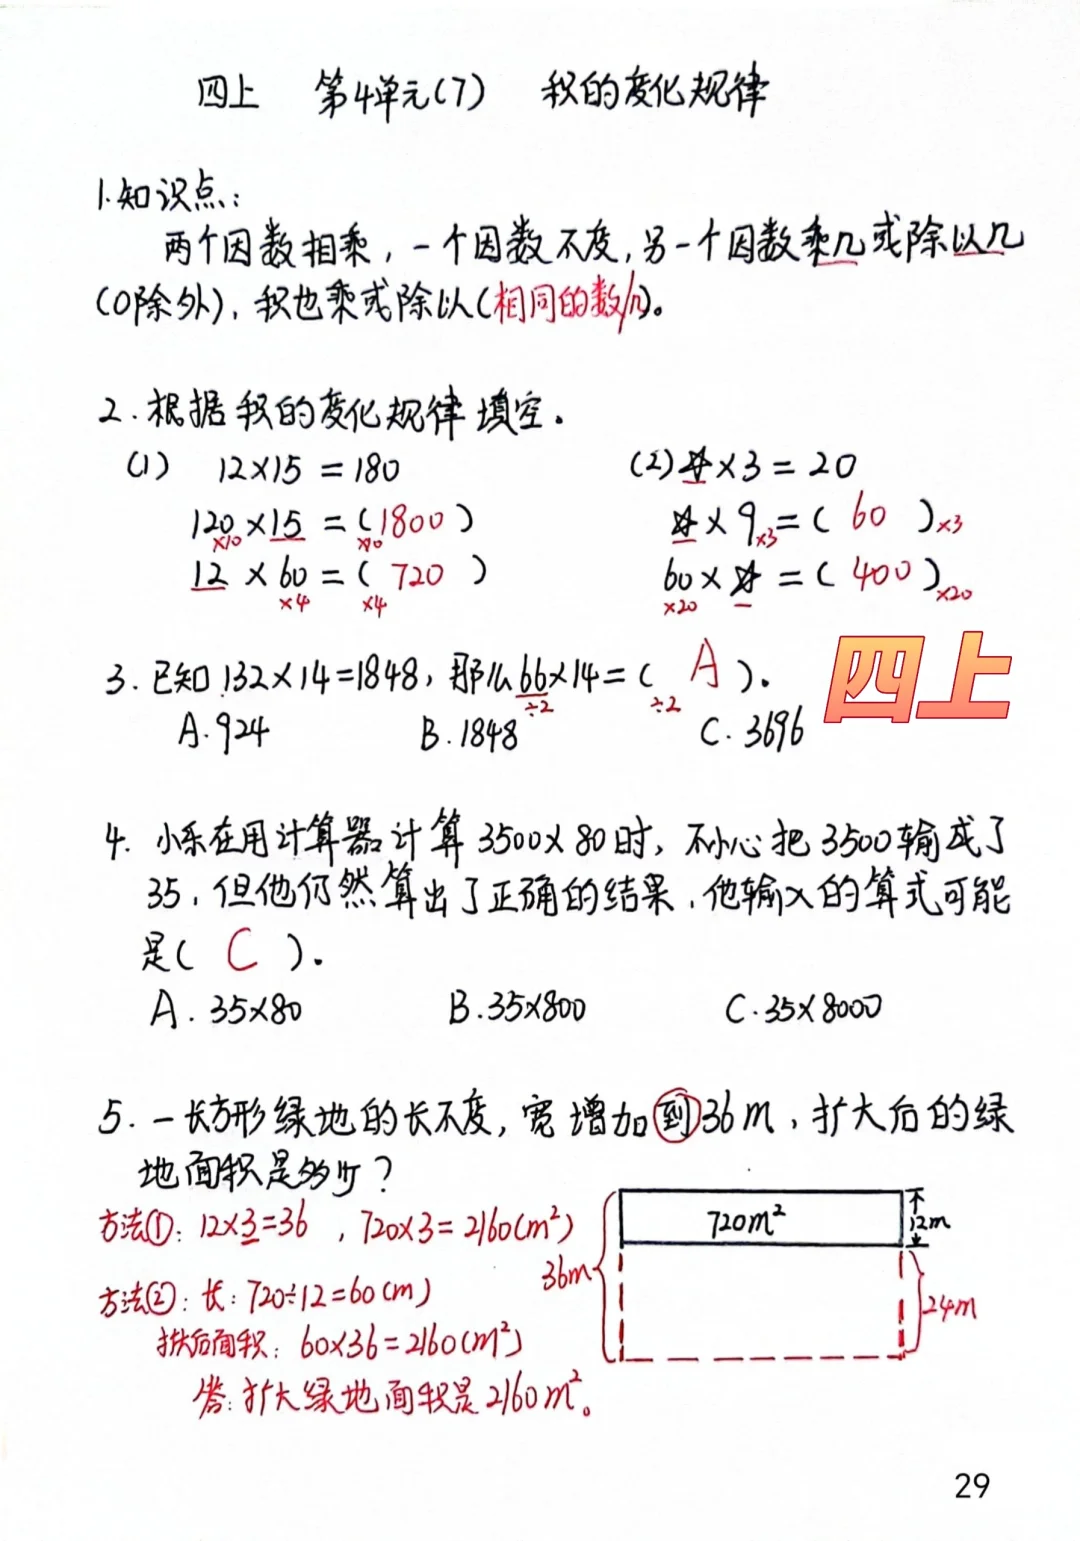 四上 第4单元(7) 积的变化规律
1.知识点:
两个因数相乘,一个因数不变,另一个因数乘几或除以几
(0除外),积也乘或除以(相同的数/几)。
2.根据积的变化规律填空。
(1) 12×15=180 (2)☆×3=20
120×15=(1800) ☆×9=(60)×3
×10 ×10 ×3
12×60=(720) 60×☆=(400)×20
×4 ×4 ×20
3.已知132×14=1848,那么66×14=( A )。
÷2 ÷2
四上
A.924 B.1848 C.3696
4.小乐在用计算器计算3500×80时,不小心把3500输成了
35,但他仍然算出了正确的结果,他输入的算式可能
是( C )。
A.35×80 B.35×800 C.35×8000
5.一长方形绿地的长不变,宽增加到36m,扩大后的绿
地面积是多少?
方法①:12×3=36,720×3=2160(m²)
720m² 12m
36m
方法②:长:720÷12=60(m)
24m
扩大后面积:60×36=2160(m²)
答:扩大绿地面积是2160m²。
29